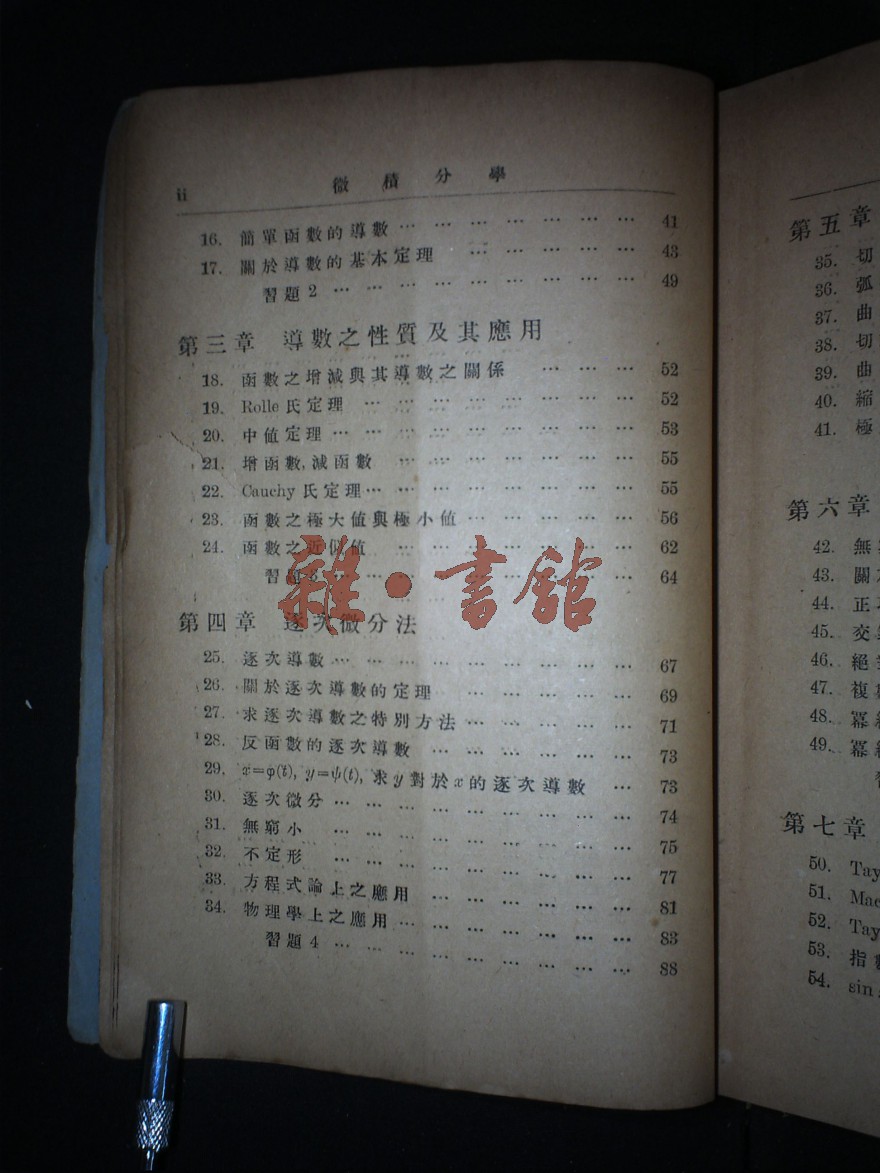 ii 微積分學
16. 簡單函數的導數 … … … … … … … 41
17. 關於導數的基本定理 … … … … … 43
習題2 … … … … … … … … … 49
第三章 導數之性質及其應用
18. 函數之增減與其導數之關係 … … … 52
19. Rolle氏定理 … … … … … … … … 52
20. 中値定理 … … … … … … … … … 53
21. 增函數,減函數 … … … … … … … 55
22. Cauchy氏定理 … … … … … … … … 55
23. 函數之極大値與極小値 … … … … … 56
24. 函數之近似値 … … … … … … … 62
習題3 … … … … … … … … … 64
第四章 逐次微分法
25. 逐次導數 … … … … … … … … … 67
26. 關於逐次導數的定理 … … … … … 69
27. 求逐次導數之特別方法 … … … … … 71
28. 反函數的逐次導數 … … … … … … 73
29. x=φ(t), y=ψ(t), 求y對於x的逐次導數 … 73
30. 逐次微分 … … … … … … … … … 74
31. 無窮小 … … … … … … … … … 75
32. 不定形 … … … … … … … … … 77
33. 方程式論上之應用 … … … … … … 81
34. 物理學上之應用 … … … … … … … 83
習題4 … … … … … … … … … 88
雜·書館
第五章
35. 切
36. 弧
37. 曲
38. 切
39. 曲
40. 縮
41. 極
第六章
42. 無
43. 關
44. 正
45. 交
46. 絕
47. 複
48. 冪
49. 冪
第七章
50. Tay
51. Mac
52. Tay
53. 指
54. sin